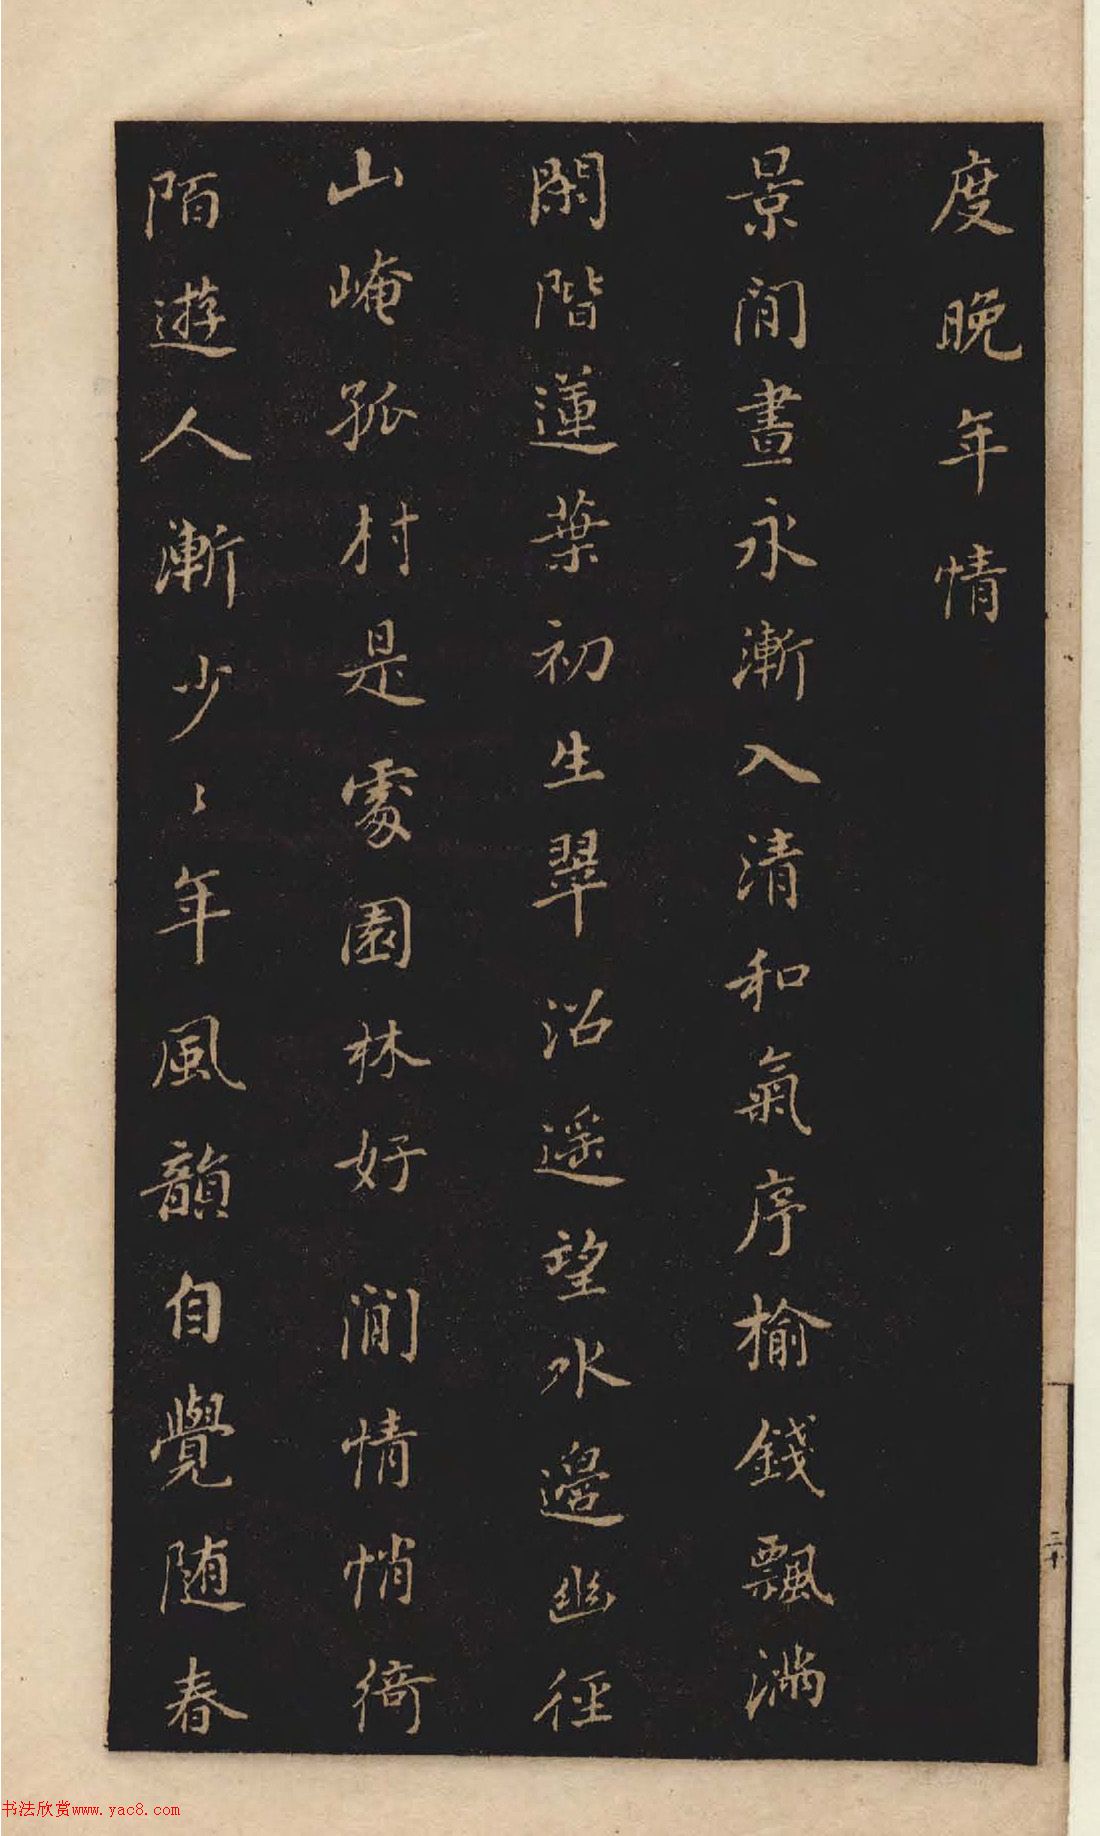 度晚年情
景閒晝永漸入清和氣序榆錢飄滿
閑階蓮葉初生翠沼遥望水邉幽徑
山崦孤村是處園林好澗情悄倚
陌遊人漸少〻年風韻自覺随春
三十
书法欣赏www.yac8.com